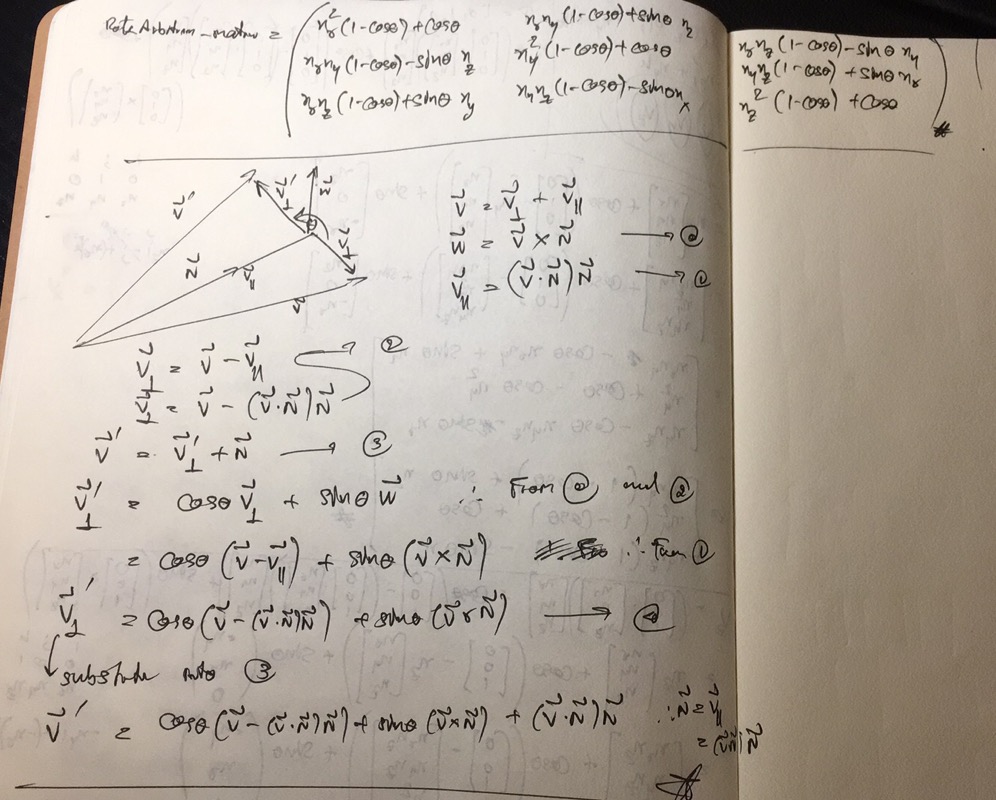 Rotate Arbitrary - matrix = ( nx²(1-Cosθ)+Cosθ   nxny(1-Cosθ)+Sinθ nz   nxnz(1-Cosθ)-Sinθ ny
nxny(1-Cosθ)-Sinθ nz   ny²(1-Cosθ)+Cosθ   nynz(1-Cosθ)+Sinθ nx
nxnz(1-Cosθ)+Sinθ ny   nynz(1-Cosθ)-Sinθnx   nz²(1-Cosθ)+Cosθ )
v⃗′ v⃗⊥′ w⃗ θ v⃗⊥ n⃗ v⃗∥ v⃗
v⃗ = v⃗⊥ + v⃗∥
w⃗ = v⃗⊥ × n⃗ → ⓪
v⃗∥ = (v⃗·n⃗)n⃗ → ①
v⃗⊥ = v⃗ - v⃗∥ → ②
v⃗⊥ = v⃗ - (v⃗·n⃗)n⃗
v⃗′ = v⃗⊥′ + n⃗ → ③
v⃗⊥′ = cosθ v⃗⊥ + sinθ w⃗ ∴ From ⓪ and ②
= cosθ (v⃗-v⃗∥) + sinθ (v⃗×n⃗) ∴ From ①
v⃗⊥′ = cosθ(v⃗-(v⃗·n⃗)n⃗) + sinθ(v⃗×n⃗) → ④
↳ substitute into ③
v⃗′ = cosθ(v⃗-(v⃗·n⃗)n⃗)+sinθ(v⃗×n⃗) + (v⃗·n⃗)n⃗ ∴ n⃗ = v⃗∥
= (v⃗·n⃗)n⃗